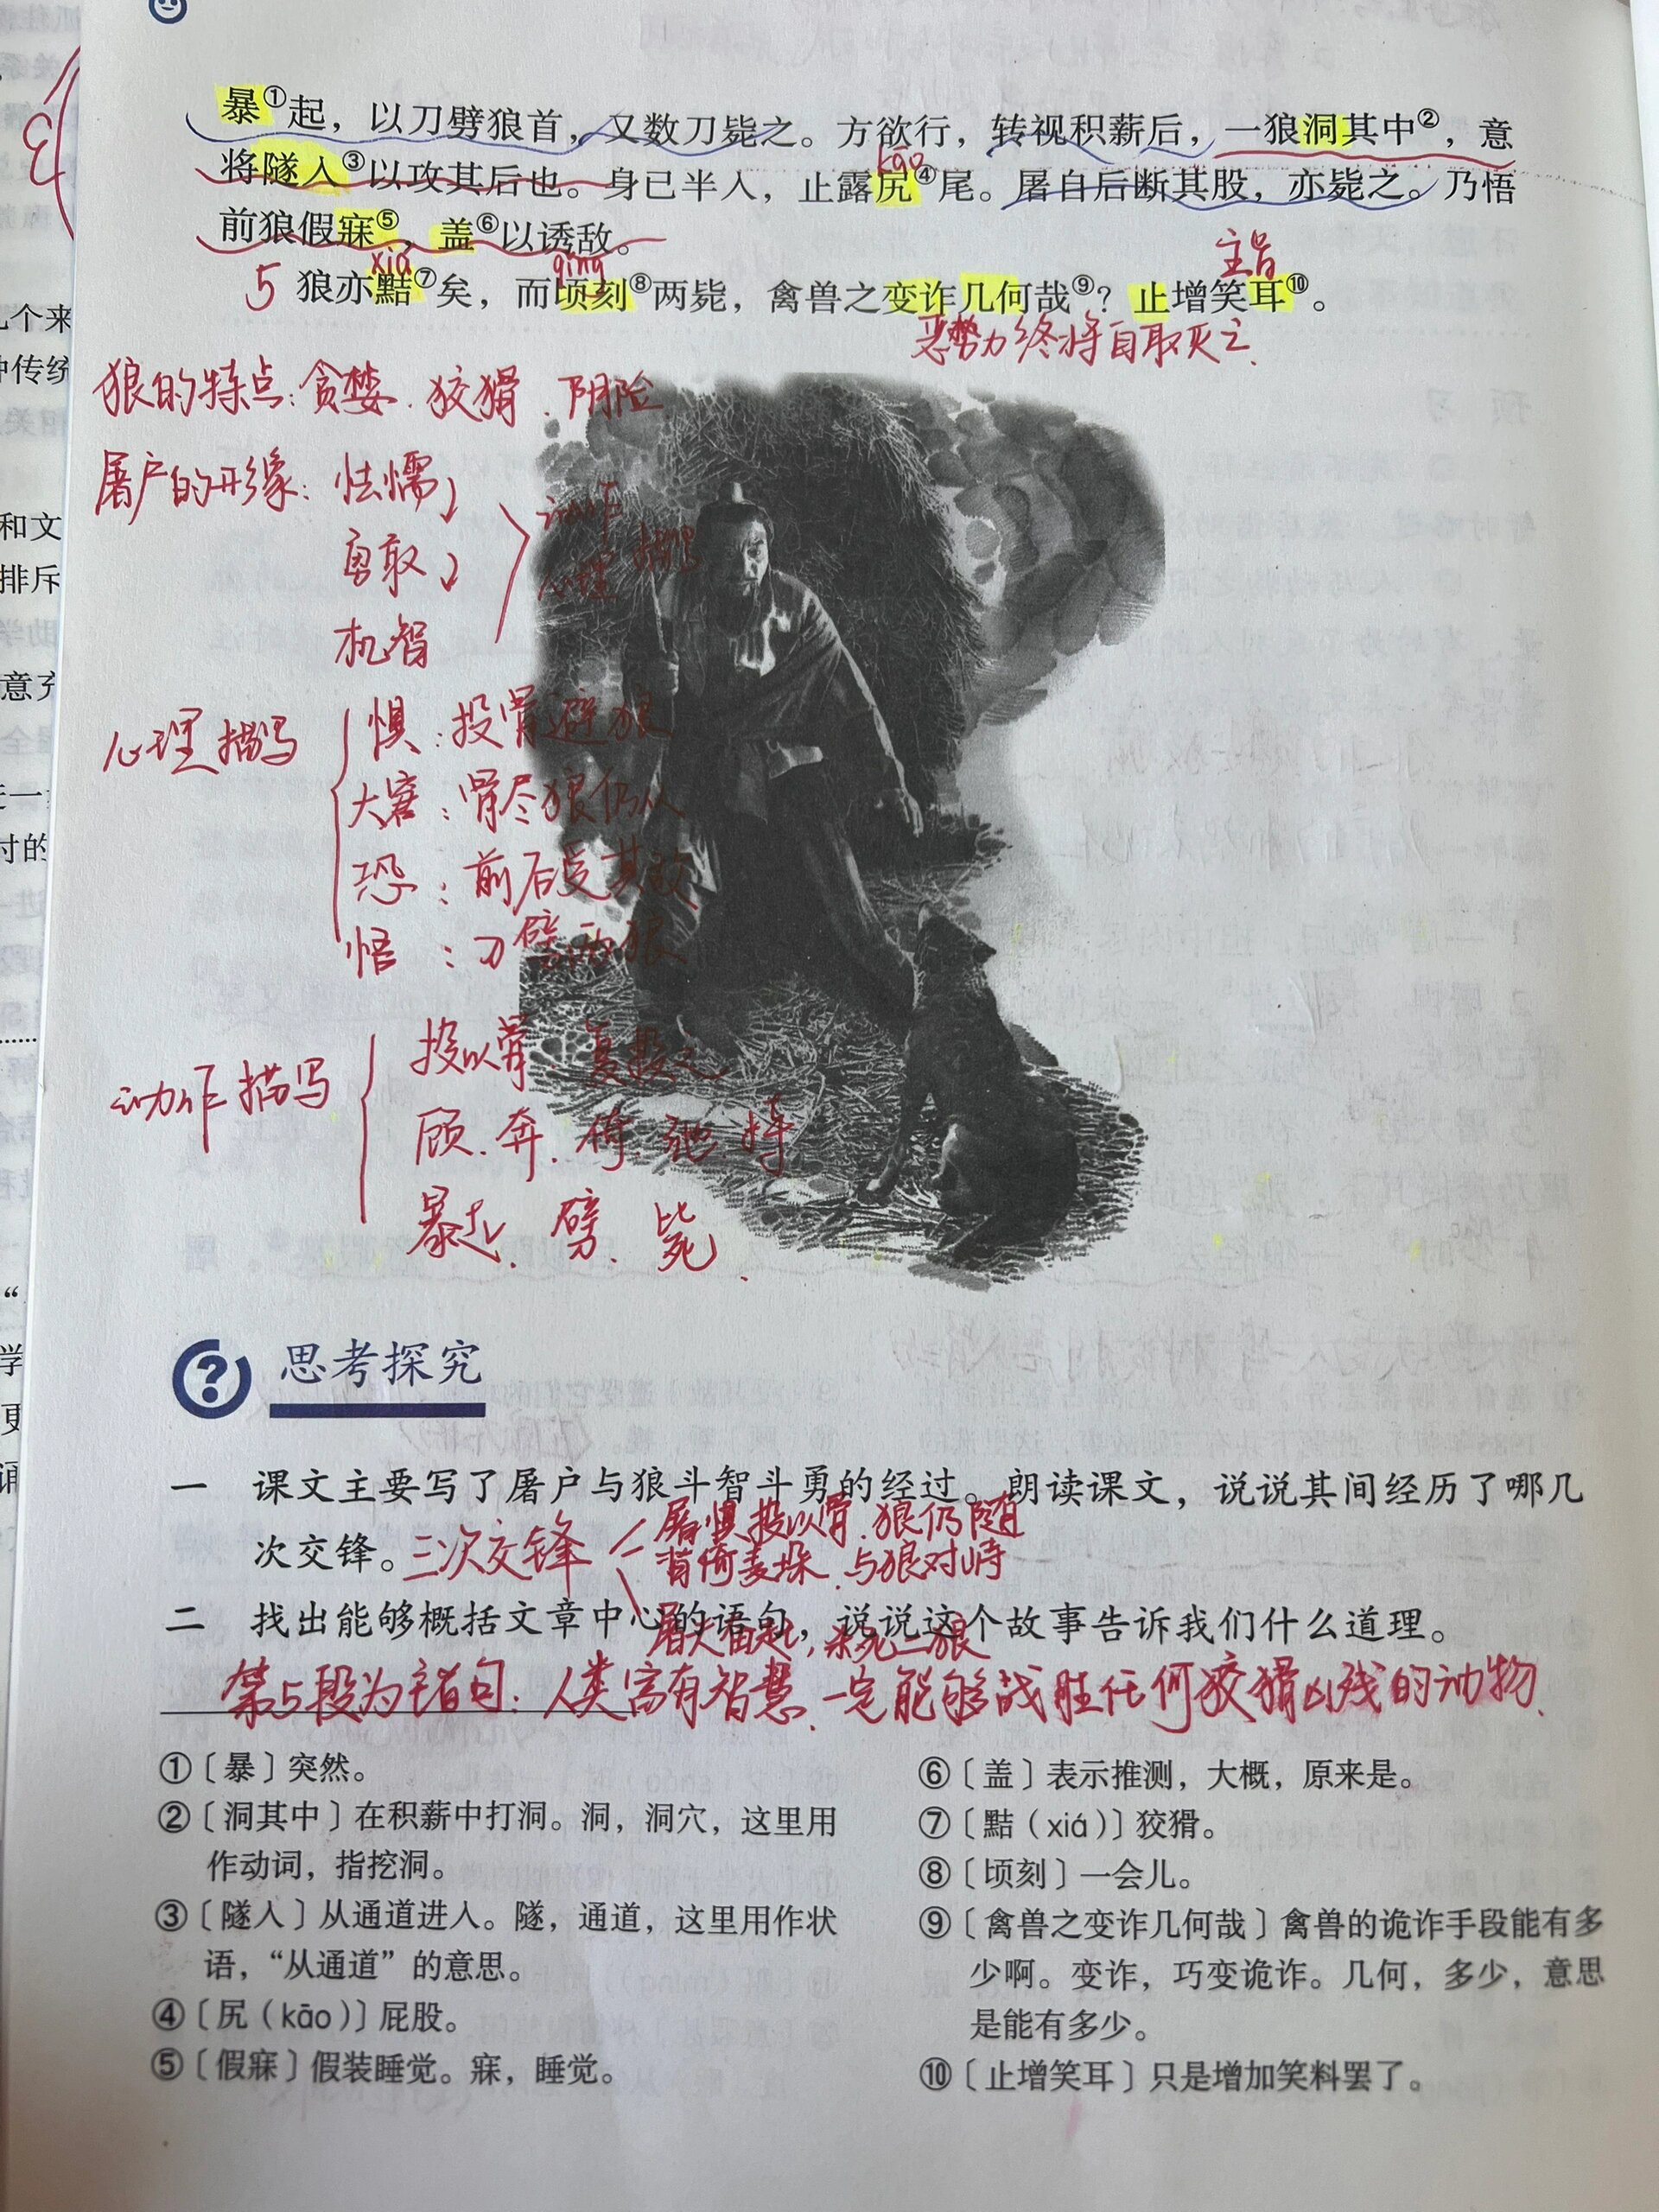 暴①起，以刀劈狼首，又数刀毙之。方欲行，转视积薪后，一狼洞其中②，意
kāo
将隧入③以攻其后也。身已半入，止露尻④尾。屠自后断其股，亦毙之。乃悟
前狼假寐⑤，盖⑥以诱敌。
xiá
qǐng
主旨
5 狼亦黠⑦矣，而顷刻⑧两毙，禽兽之变诈几何哉⑨？止增笑耳⑩。
恶势力终将自取灭亡
狼的特点：贪婪、狡猾、阴险
屠户的形象：怯懦
勇敢
机智
动作
心理 描写
心理描写
惧：投骨避狼
大窘：骨尽狼仍从
恐：前后受其敌
悟：刀劈两狼
动作描写
投以骨 复投之
顾、奔、倚、弛 持
暴起、劈、毙
思考探究
一 课文主要写了屠户与狼斗智斗勇的经过。朗读课文，说说其间经历了哪几
次交锋。三次交锋
屠惧投以骨、狼仍随
背倚麦垛、与狼对峙
二 找出能够概括文章中心的语句，说说这个故事告诉我们什么道理。
屠夫奋起，杀死二狼
第5段为主旨句：人类富有智慧、一定能够战胜任何狡猾凶残的动物
①〔暴〕突然。
②〔洞其中〕在积薪中打洞。洞，洞穴，这里用
作动词，指挖洞。
③〔隧入〕从通道进入。隧，通道，这里用作状
语，“从通道”的意思。
④〔尻（kāo）〕屁股。
⑤〔假寐〕假装睡觉。寐，睡觉。
⑥〔盖〕表示推测，大概，原来是。
⑦〔黠（xiá）〕狡猾。
⑧〔顷刻〕一会儿。
⑨〔禽兽之变诈几何哉〕禽兽的诡诈手段能有多
少啊。变诈，巧变诡诈。几何，多少，意思
是能有多少。
⑩〔止增笑耳〕只是增加笑料罢了。